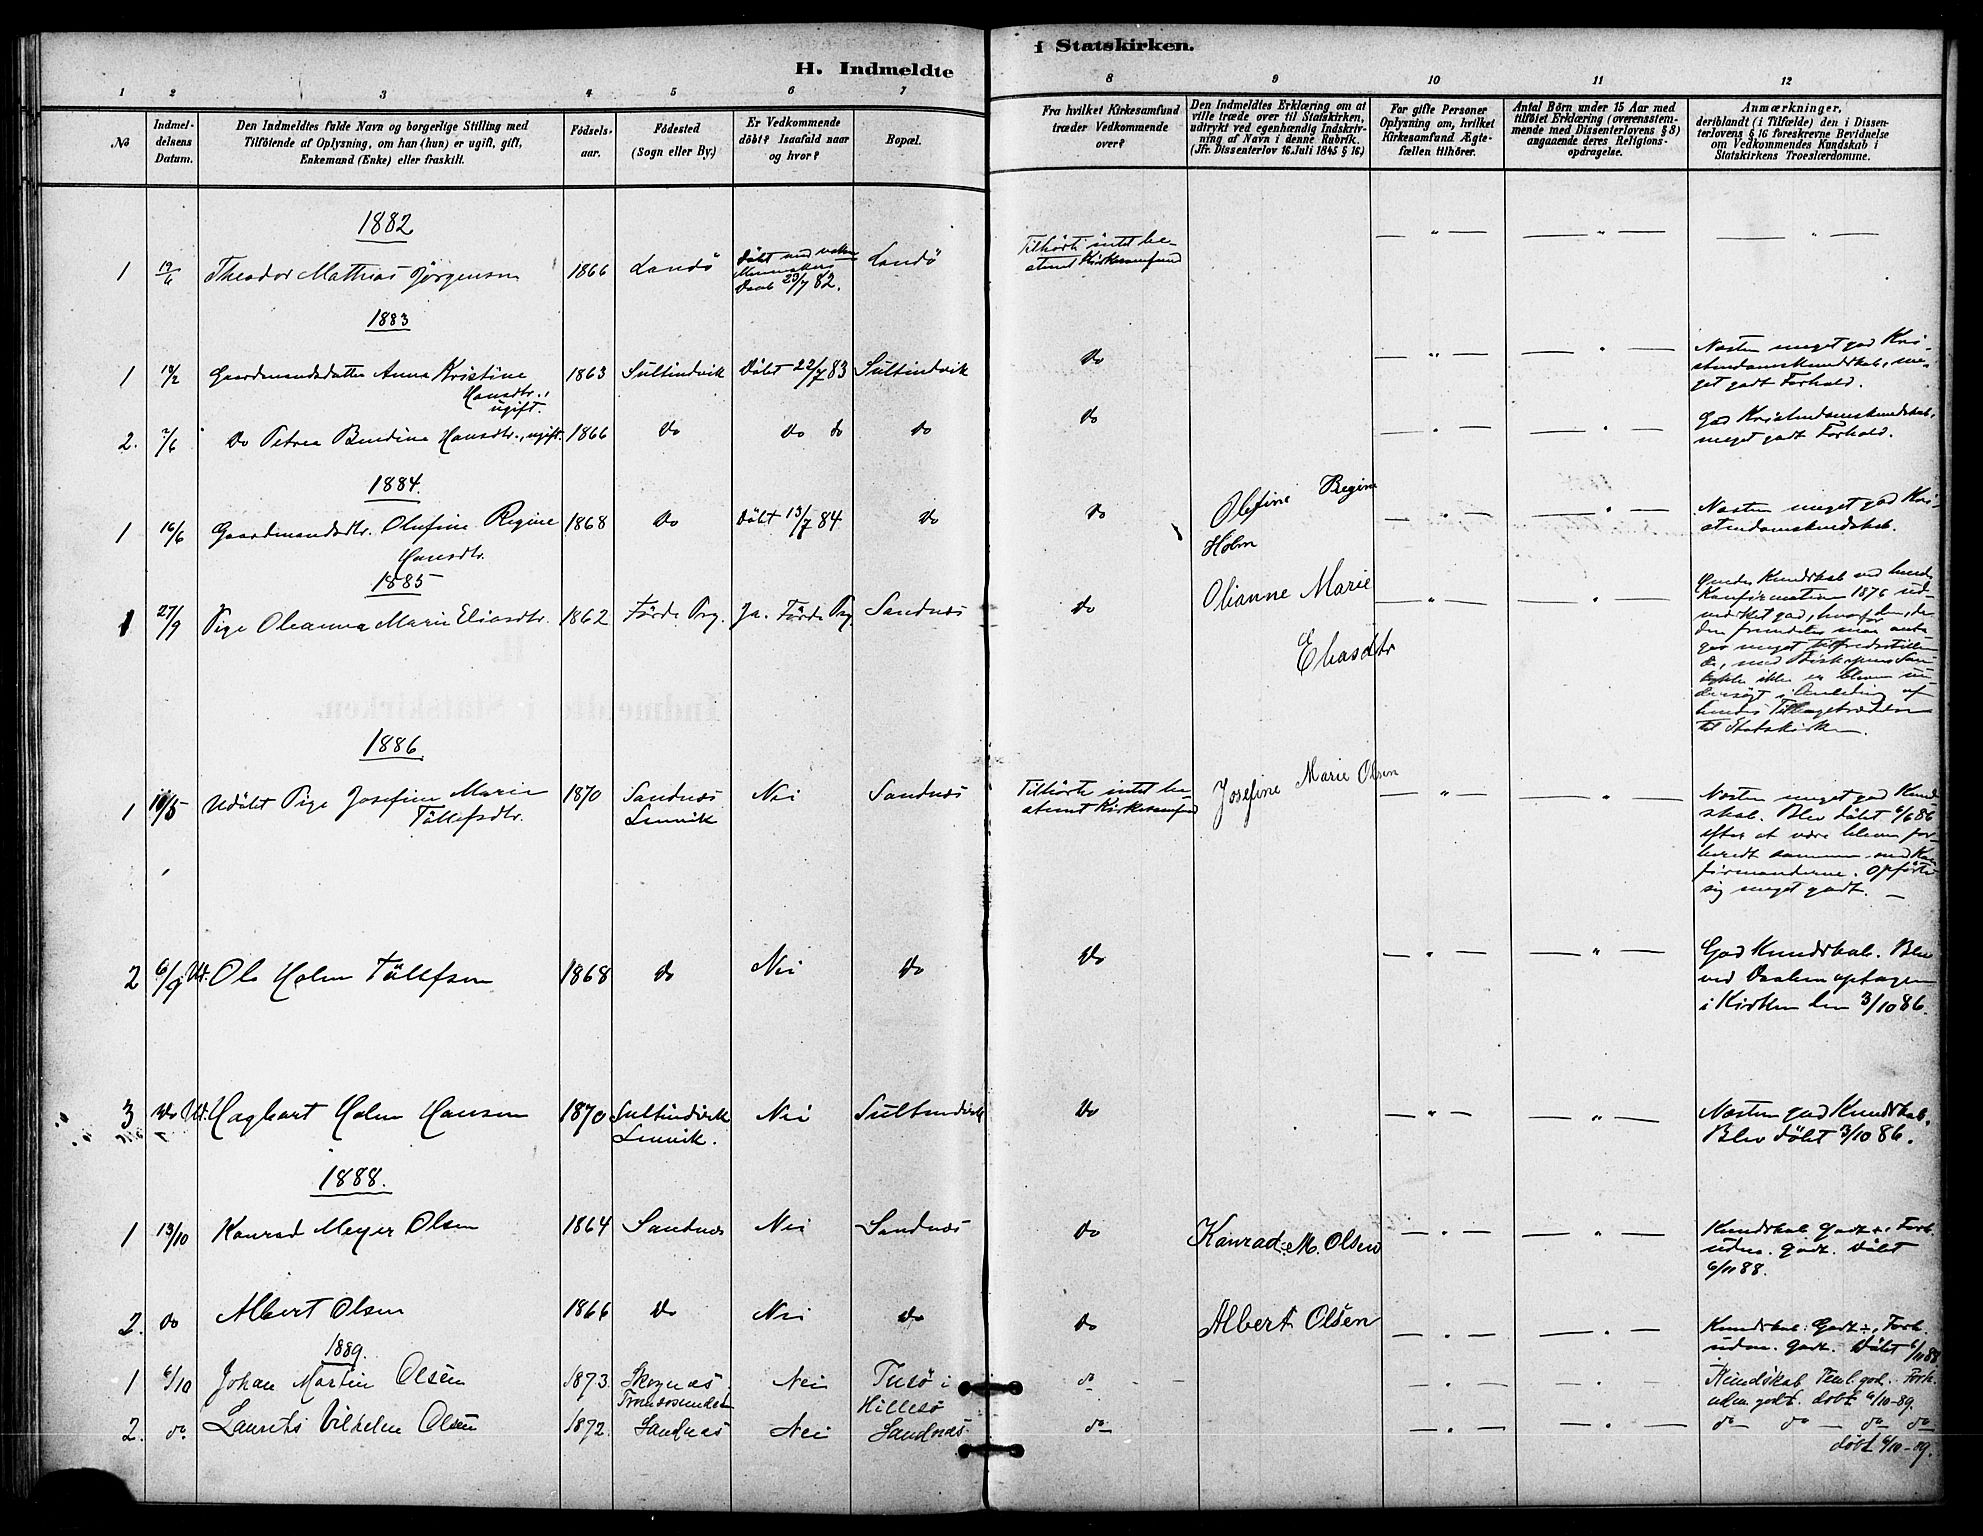 H. Indmeldte i Statskirken.
1 2 3 4 5 6 7 8 9 10 11 12
No
Indmel-
delsens
Datum.
Den Indmeldtes fulde Navn og borgerlige Stilling med
Tilföiende af Oplysning, om han (hun) er ugift, gift,
Enkemand (Enke) eller fraskilt.
Födsels-
aar.
Födested
(Sogn eller By.)
Er Vedkommende
döbt? Isaafald naar
og hvor?
Bopæl.
Fra hvilket Kirkesamfund
træder Vedkommende
over?
Den Indmeldtes Erklæring om at
ville træde over til Statskirken,
udtrykt ved egenhændig Indskriv-
ning af Navn i denne Rubrik.
(Jfr. Dissenterlov 16 Juli 1845 § 16.)
For gifte Personer
Oplysning om, hvilket
Kirkesamfund Ægte-
fællen tilhörer.
Antal Börn under 15 Aar med
tilföiet Erklæring (overensstem-
mende med Dissenterlovens § 8)
angaaende deres Religions-
opdragelse.
Anmærkninger,
deriblandt (i Tilfælde) den i Dissen-
terlovens § 16 foreskrevne Bevidnelse
om Vedkommendes Kundskab i
Statskirkens Troeslærdomme.
1882
1 19/6 Theodor Mathias Jörgensen 1866 Sandö Döbt med
Daab 23/7 82. Sandö Tilhörte intet be-
stemt Kirkesamfund — " — — " — — " —
1883
1 10/2 Gaardmandsdatter Anna Kristine
Hansdtr.,
ugift. 1863 Sultindvik Döbt 22/7 83 Sultindvik Do — " — — " — Næsten meget god Kri-
stendomskundskab, me-
get godt Forhold.
2. 7/6 Do Petrea Bendine Hansdtr., ugift. 1866 Do Do do Do Do — " — — " — God Kristendomskundskab,
meget godt Forhold.
1884.
1 16/6 Gaardmandsdtr. Olufine Regine
Hansdtr. 1868 Do Döbt 13/7 84 Do Do Olefine Regine
Holm — " — — " — Næsten meget god Kri-
stendomskundskab.
1885
1 27/9 Pige Oleanna Marie Eliasdtr. 1862 Förde Prg. Ja. Förde Prg. Sandnæs Do Olianne Marie
Eliasdtr — " — — " — Hendes Kundskab ved hendes
Konfirmation 1876 ud-
mærket god, hvorfor den, da
den fremdeles maa anta-
ges meget tilfredsstillen-
de, med Biskopens Sam-
tykke ikke er bleven un-
dersögt i Anledning af
hendes Tilbagetræden
til Statskirken.
1886.
1 10/5 Udöbt Pige Josefine Marie
Tollefsdtr. 1870 Sandnæs
Lenvik Nei Sandnæs Tilhörte intet be-
stemt Kirkesamfund Josefine Marie Olsen — " — — " — Næsten meget god Kund-
skab. Blev döbt 6/6 86
efter at være bleven for-
beredt sammen med Kon-
firmanderne. Opförte
sig meget godt. —
2 6/9 Ud. Ole Holm Tollefsen 1868 Do Nei Do Do — " — — " — God Kundskab. Blev
ved Daaben optagen
i Kirken den 3/10 86.
3 Do Ud. Hagbart Holm Hansen 1870 Sultindvik
Lenvik. Nei Sultindvik Do — " — — " — Næsten god Kundskab.
Blev döbt 3/10 86.
1888.
1 13/10 Konrad Meyer Olsen 1864 Sandnæs Nei Sandnæs Do Konrad M. Olsen — " — — " — Kundskab. Godt ÷, Forh.
uden. godt. Döbt
6/11 88.
2. Do Albert Olsen 1866 Do Nei Do Do Albert Olsen — " — — " — Kundskab. Godt ÷, Forh.
uden. godt. Döbt 6/11 88.
1889.
1 6/10 Johan Martin Olsen 1873. Skognæs
Tromsösundet Nei Tusö i
Hillesö do — " — — " — Kundskab Teml. god. Forh.
uden. godt. döbt 6/10-89.
2. do. Laurits Vilhelm Olsen 1872. Sandnæs Nei Sandnæs. do — " — — " — do do do do
döbt 6/10-89.